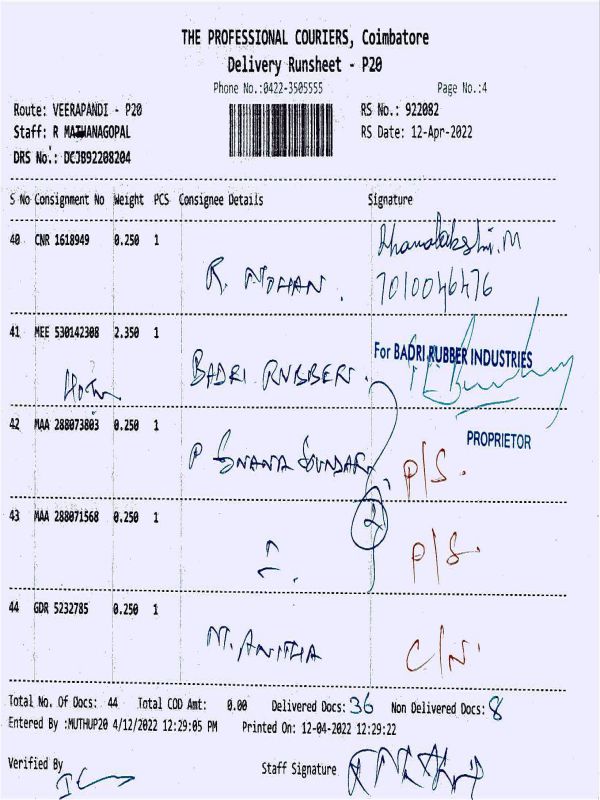 THE PROFESSIONAL COURIERS, Coimbatore
Delivery Runsheet - P20
Phone No.:0422-3505555 Page No.:4
Route: VEERAPANDI - P20 RS No.: 922082
Staff: R MATHANAGOPAL RS Date: 12-Apr-2022
DRS No.: DCJB92208204
S No Consignment No Weight PCS Consignee Details Signature
40 CNR 1618949 0.250 1 Dhanalakshmi.M
R. MOHAN. 7010046476
41 MEE 530142308 2.350 1
For BADRI RUBBER INDUSTRIES
BADRI RUBBER.
42 MAA 288073803 0.250 1
PROPRIETOR
P GNANA SOUNDAR P/S.
43 MAA 288071568 0.250 1
2
P/S.
44 GDR 5232785 0.250 1
M. ANITHA C/N.
Total No. Of Docs: 44 Total COD Amt: 0.00 Delivered Docs: 36 Non Delivered Docs: 8
Entered By :MUTHUP20 4/12/2022 12:29:05 PM Printed On: 12-04-2022 12:29:22
Verified By
Staff Signature